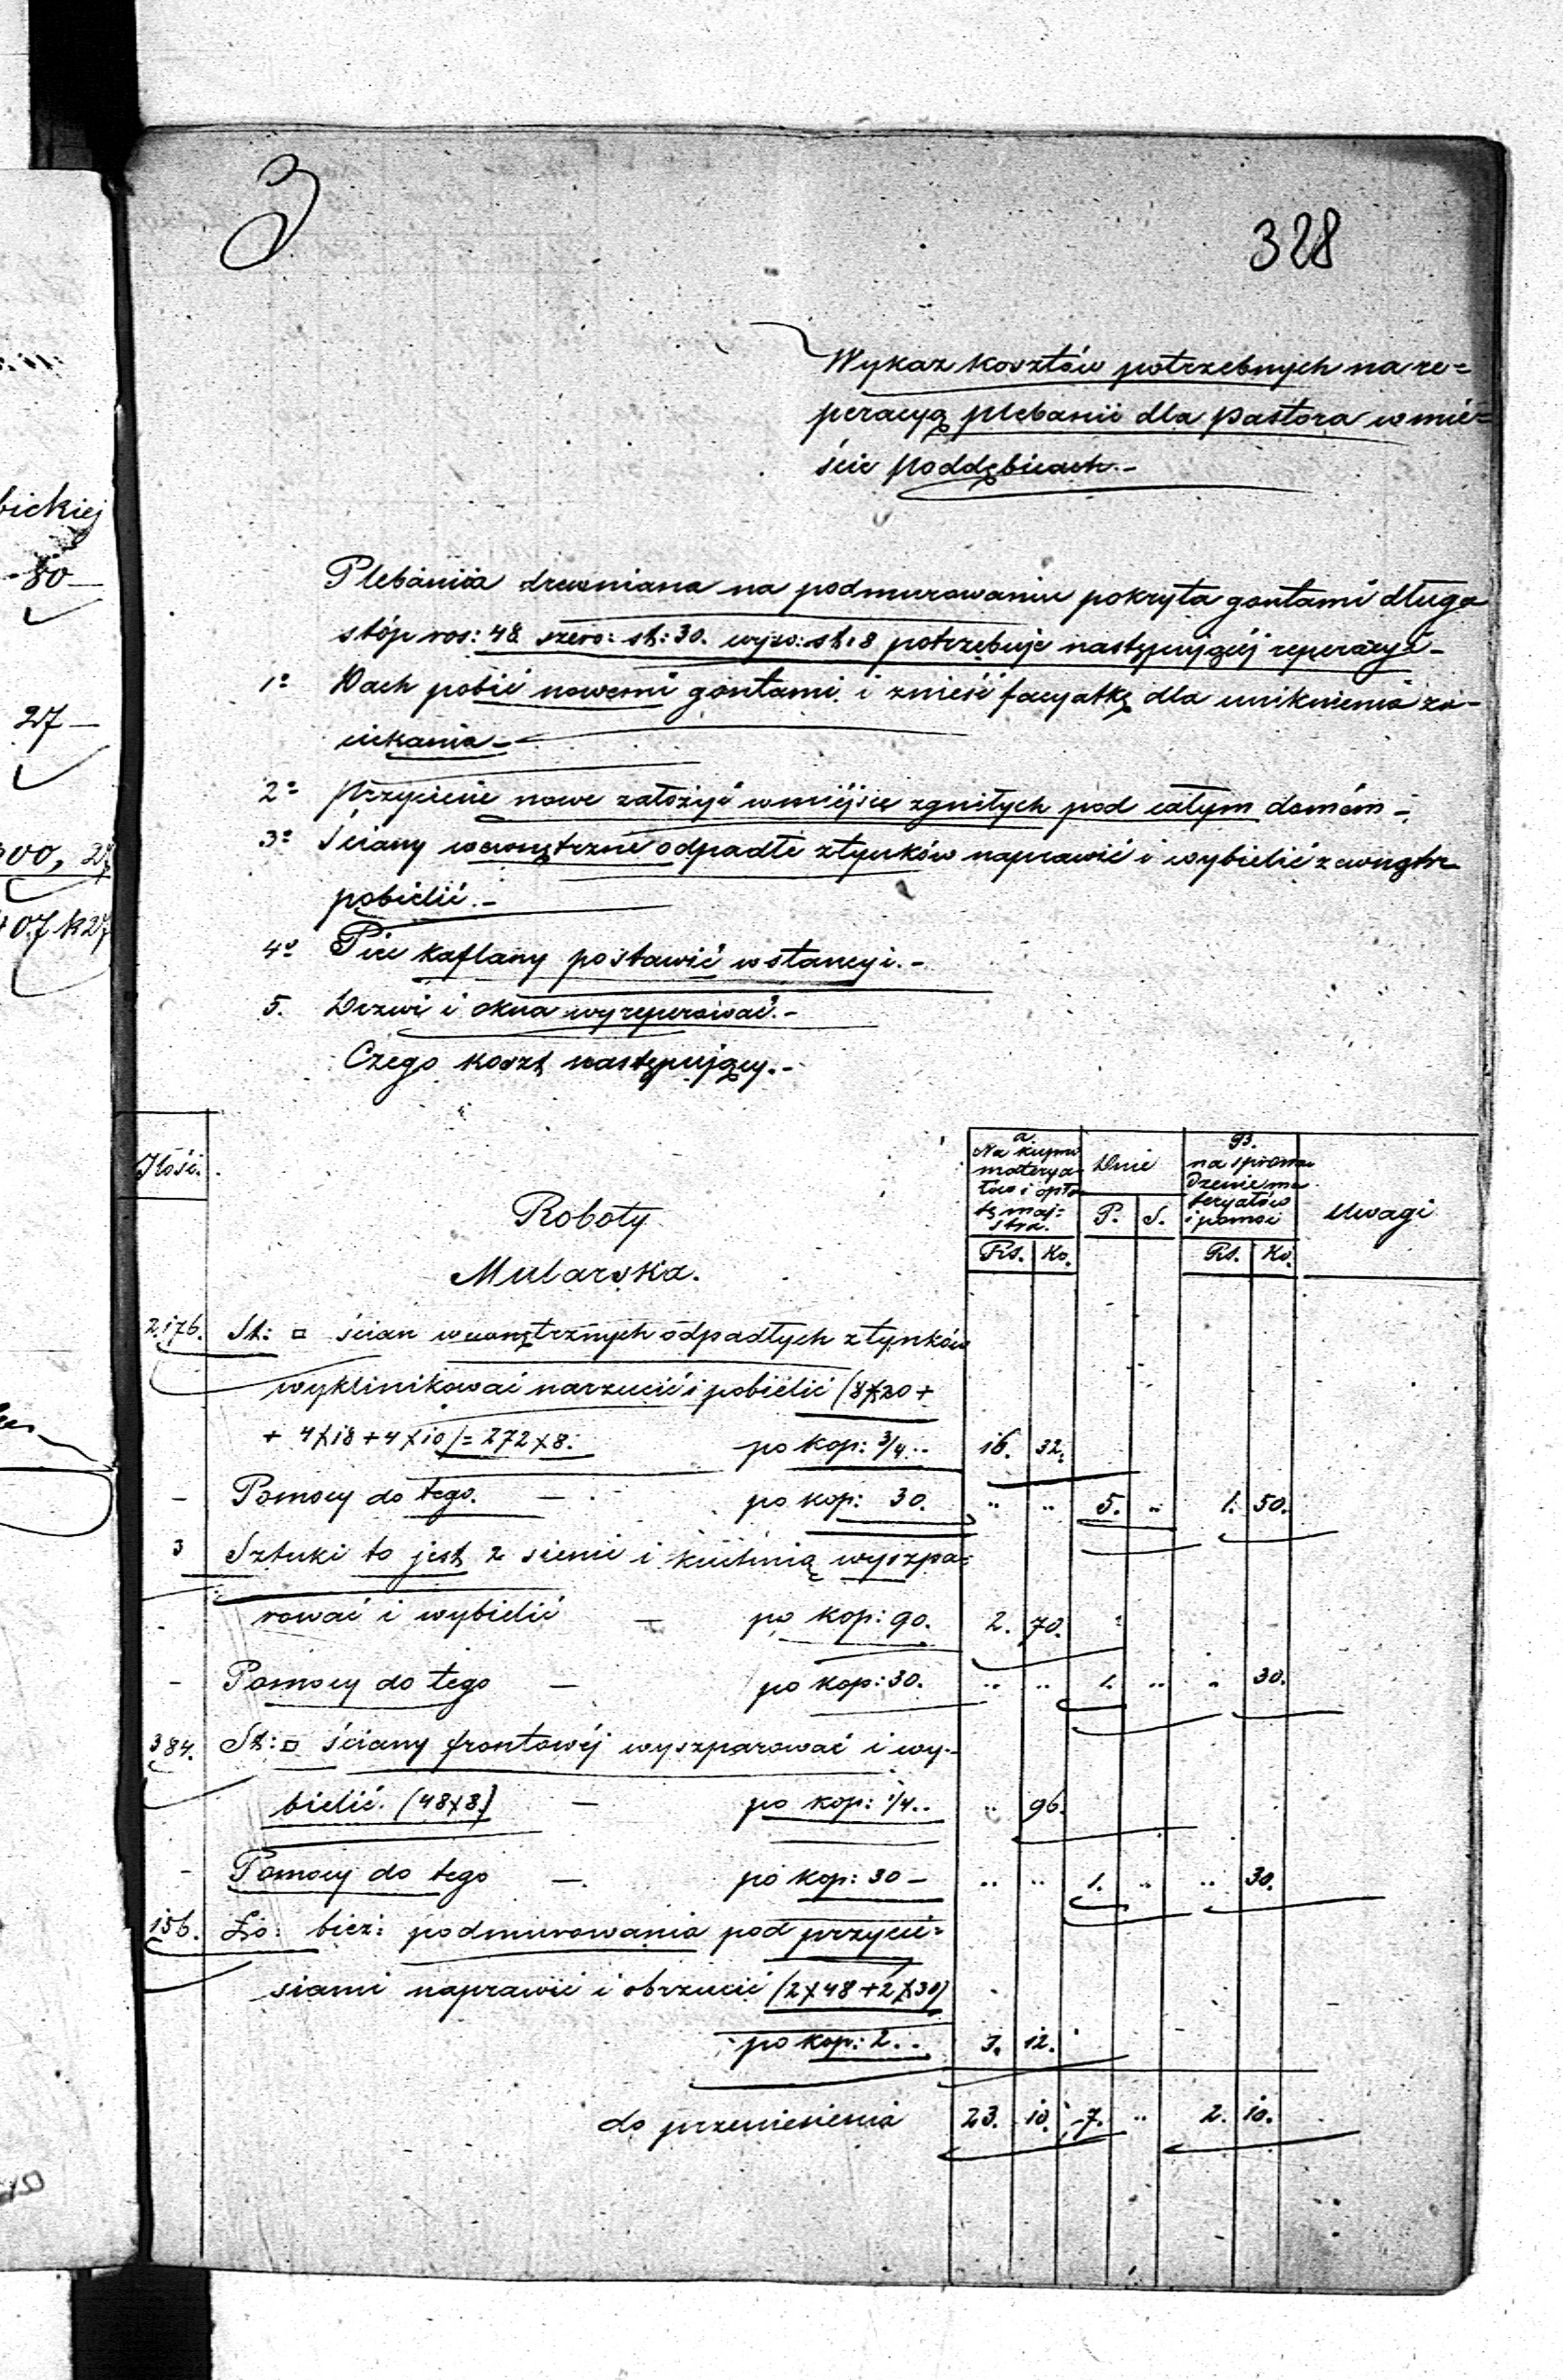 3
328
Wykaz kosztów potrzebnych na re=
peracyą plebanii dla Pastora w mie=
ście Poddębicach.-
bickiej
-80-
27-
300, 27
407 k 27
Plebaniia drewniana na podmurowaniu pokryta gontami długa
stóp ros: 48 szero: st: 30. wyso: st: 8 potrzebuje następującéj reperacyi-
1º Dach pobić nowemi gontami i znieść facyatkę dla uniknienia za-
ciekania-
2º Przyciesie nowe założyć w miéjsce zgniłych pod całym domém-
3º Ściany wewnętrzne odpadłe z tynków naprawić i wybielić zewnątrz
pobielić.-
4º Piec kaflany postawić w stancyi.-
5. Drzwi i okna wyreperować.-
Czego koszt następujący.-
Ilość.
a.
Na kupno
materya-
łów i opła-
tę maj=
stra.
Dnie
B.
na sprowa-
dzenie ma-
teryałów
i pomoc
Uwagi
P. S.
Rs. Ko. Rs. Ko.
Roboty
Mularska.
2.176. St: □ ścian wewnętrznych odpadłych z tynków
wyklinikować narzucić i pobielić (8×20+
+ 4×18+4×10)=272×8. po kop: 3/4.. 16. 32.
- Pomocy do tego. - po kop: 30. .. .. 5. .. 1. 50.
3 Sztuki to jest 2 sienie i kuchnią wyszpa=
rować i wybielić - po kop: 90. 2. 70.
- Pomocy do tego - po kop: 30. .. .. 1. .. .. 30.
384. St: □ ściany frontowéj wyszparować i wy-
bielić. (48×8.) - po kop: 1/4.. .. 96.
- Pomocy do tego -. po kop: 30 - .. .. 1. .. .. 30.
156. Ło: bież: podmurowania pod przycie=
siami naprawić i obrzucić (2×48+2×30)
po kop: 2.. 3. 12.
do przeniesienia 23. 10. 7. .. 2. 10.